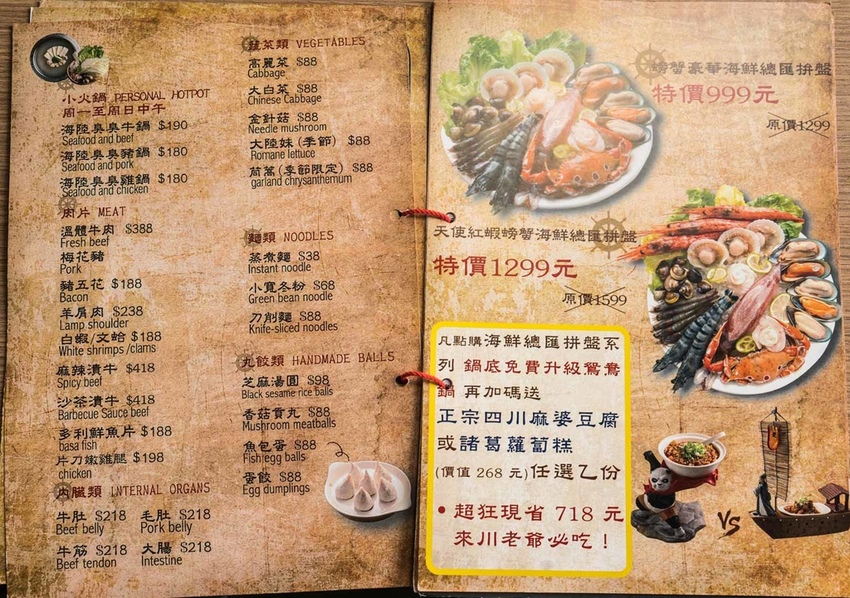 小火鍋 PERSONAL HOTPOT
周一至周日中午
海陸臭臭牛鍋 $190
Seafood and beef
海陸臭臭豬鍋 $180
Seafood and pork
海陸臭臭雞鍋 $180
Seafood and chicken
肉片 MEAT
溫體牛肉 $388
Fresh beef
梅花豬
Pork
豬五花 $188
Bacon
羊肩肉 $238
Lamp shoulder
白蝦/文蛤 $188
White shrimps /clams
麻辣漬牛 $418
Spicy beef
沙茶漬牛 $418
Barbecue Sauce beef
多利鮮魚片 $188
basa fish
片刀嫩雞腿 $198
chicken
內臟類 INTERNAL ORGANS
牛肚 $218 毛肚 $218
Beef belly Pork belly
牛筋 $218 大腸 $218
Beef tendon Intestine
蔬菜類 VEGETABLES
高麗菜 $88
Cabbage
大白菜 $88
Chinese Cabbage
金針菇 $88
Needle mushroom
大陸妹(季節) $88
Romane lettuce
茼蒿(季節限定) $88
garland chrysanthemum
麵類 NOODLES
蒸煮麵 $38
Instant noodle
小寬冬粉 $68
Green bean noodle
刀削麵 $88
Knife-sliced noodles
丸餃類 HANDMADE BALLS
芝麻湯圓 $98
Black sesame rice balls
香菇貢丸 $88
Mushroom meatballs
魚包蛋 $88
Fish egg balls
蛋餃 $88
Egg dumplings
螃蟹豪華海鮮總匯拼盤
特價999元
原價1299
天使紅蝦螃蟹海鮮總匯拼盤
特價1299元
原價1599
凡點購海鮮總匯拼盤系
列 鍋底免費升級鴛鴦
鍋 再加碼送
正宗四川麻婆豆腐
或諸葛蘿蔔糕
(價值 268 元)任選乙份
• 超狂現省 718 元
來川老爺必吃！
VS